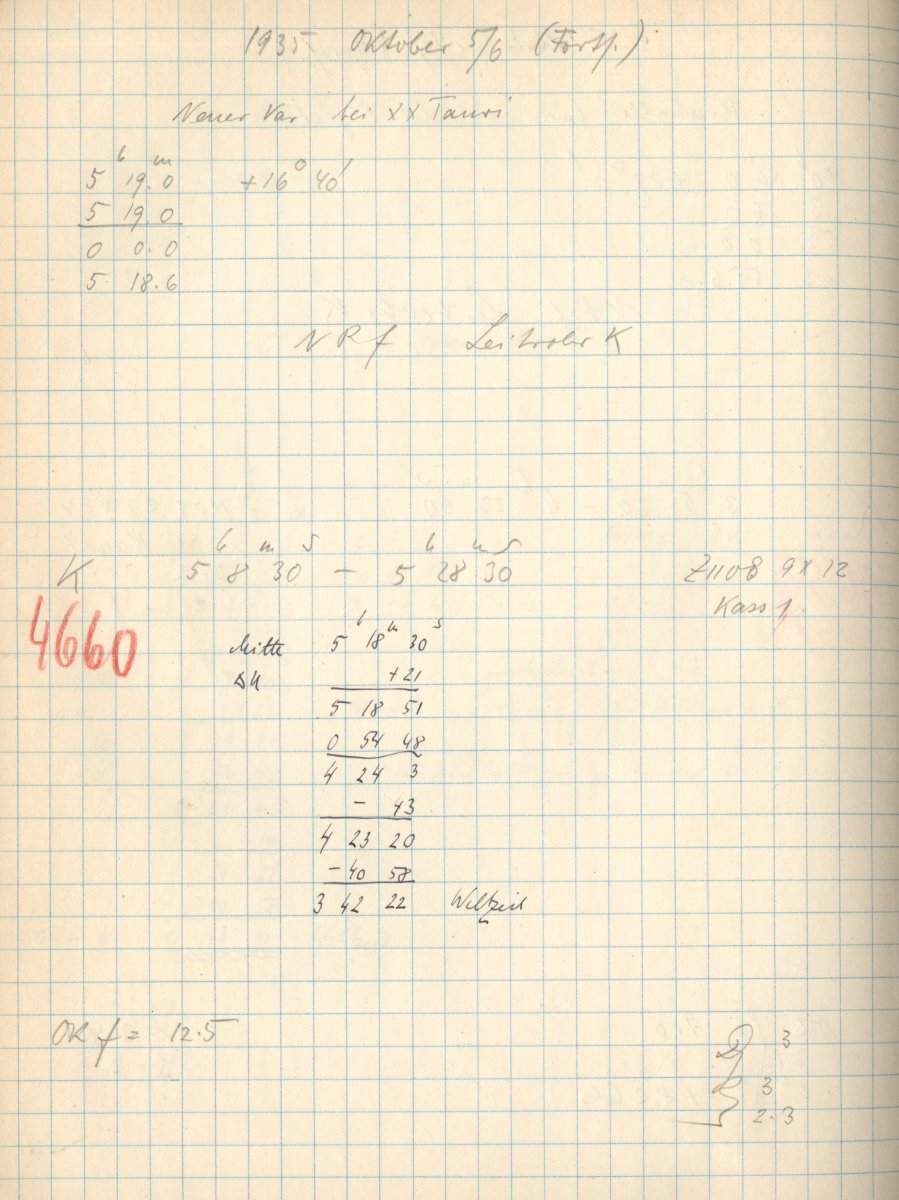 1935 Oktober 5/6 (Forts.).
Neuer Var bei XX Tauri
5ʰ 19.ᵐ0 +16° 40'
5 19.0
0 0.0
5 18.6
NRf Leitrohr K
K 5ʰ 8ᵐ 30ˢ – 5ʰ 28ᵐ 30ˢ Z1108 9x12
Kass 1.
4660
Mitte 5ʰ 18ᵐ 30ˢ
ΔU +21
5 18 51
0 54 48
4 24 3
– 43
4 23 20
–40 58
3 42 22 Weltzeit
OK f = 12.5
3
3
2.3